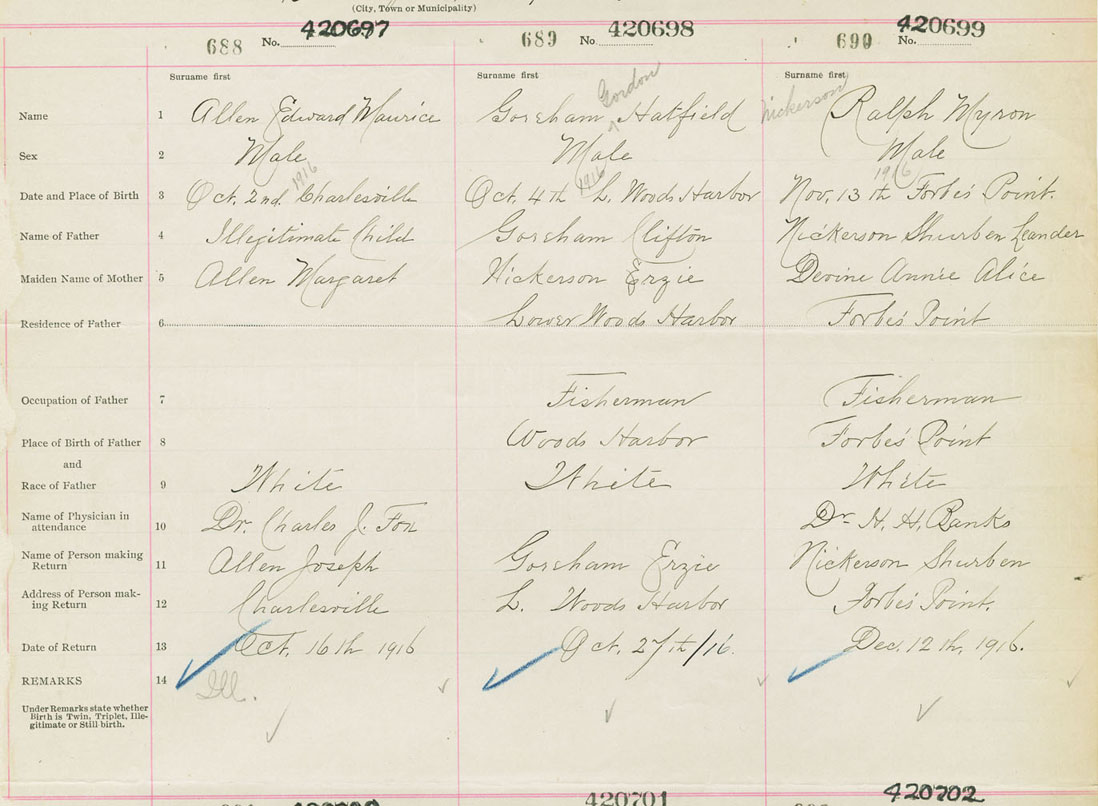 (City, Town or Municipality)
688 No. 420697 689 No. 420698 690 No. 420699
Surname first Surname first Surname first
Gordon
Name 1 Allen Edward Maurice Goreham Hatfield Nickerson Ralph Myron
Sex 2 Male Male Male
1916 1916 1916
Date and Place of Birth 3 Oct. 2nd. Charlesville Oct. 4th L. Woods Harbor Nov. 13th Forbes Point.
Name of Father 4 Illegitimate Child Goreham Clifton Nickerson Shurben Leander
Maiden Name of Mother 5 Allen Margaret Nickerson Erzie Devine Annie Alice
Residence of Father 6 Lower Woods Harbor Forbes Point
Occupation of Father 7 Fisherman Fisherman
Place of Birth of Father 8 Woods Harbor Forbes Point
and
Race of Father 9 White White White
Name of Physician in
attendance 10 Dr. Charles J. Fox Dr. H. H. Banks
Name of Person making
Return 11 Allen Joseph Goreham Erzie Nickerson Shurben
Address of Person mak-
ing Return 12 Charlesville L. Woods Harbor Forbes Point.
Date of Return 13 Oct. 16th 1916 Oct. 27th/16. Dec. 12th, 1916.
REMARKS 14 Ill.
Under Remarks state whether
Birth is Twin, Triplet, Ille-
gitimate or Still birth.
420701 420702